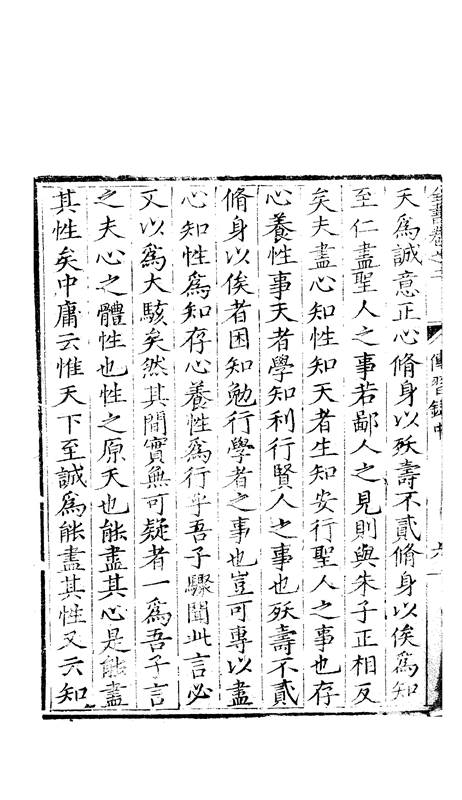 全書卷之二
傳習錄中
天爲誠意正心脩身以殀壽不貳脩身以俟爲知
至仁盡聖人之事若鄙人之見則與朱子正相反
矣夫盡心知性知天者生知安行聖人之事也存
心養性事天者學知利行賢人之事也殀壽不貳
脩身以俟者困知勉行學者之事也豈可專以盡
心知性爲知存心養性爲行乎吾子驟聞此言必
又以爲大駭矣然其間實無可疑者一爲吾子言
之夫心之體性也性之原天也能盡其心是能盡
其性矣中庸云惟天下至誠爲能盡其性又云知